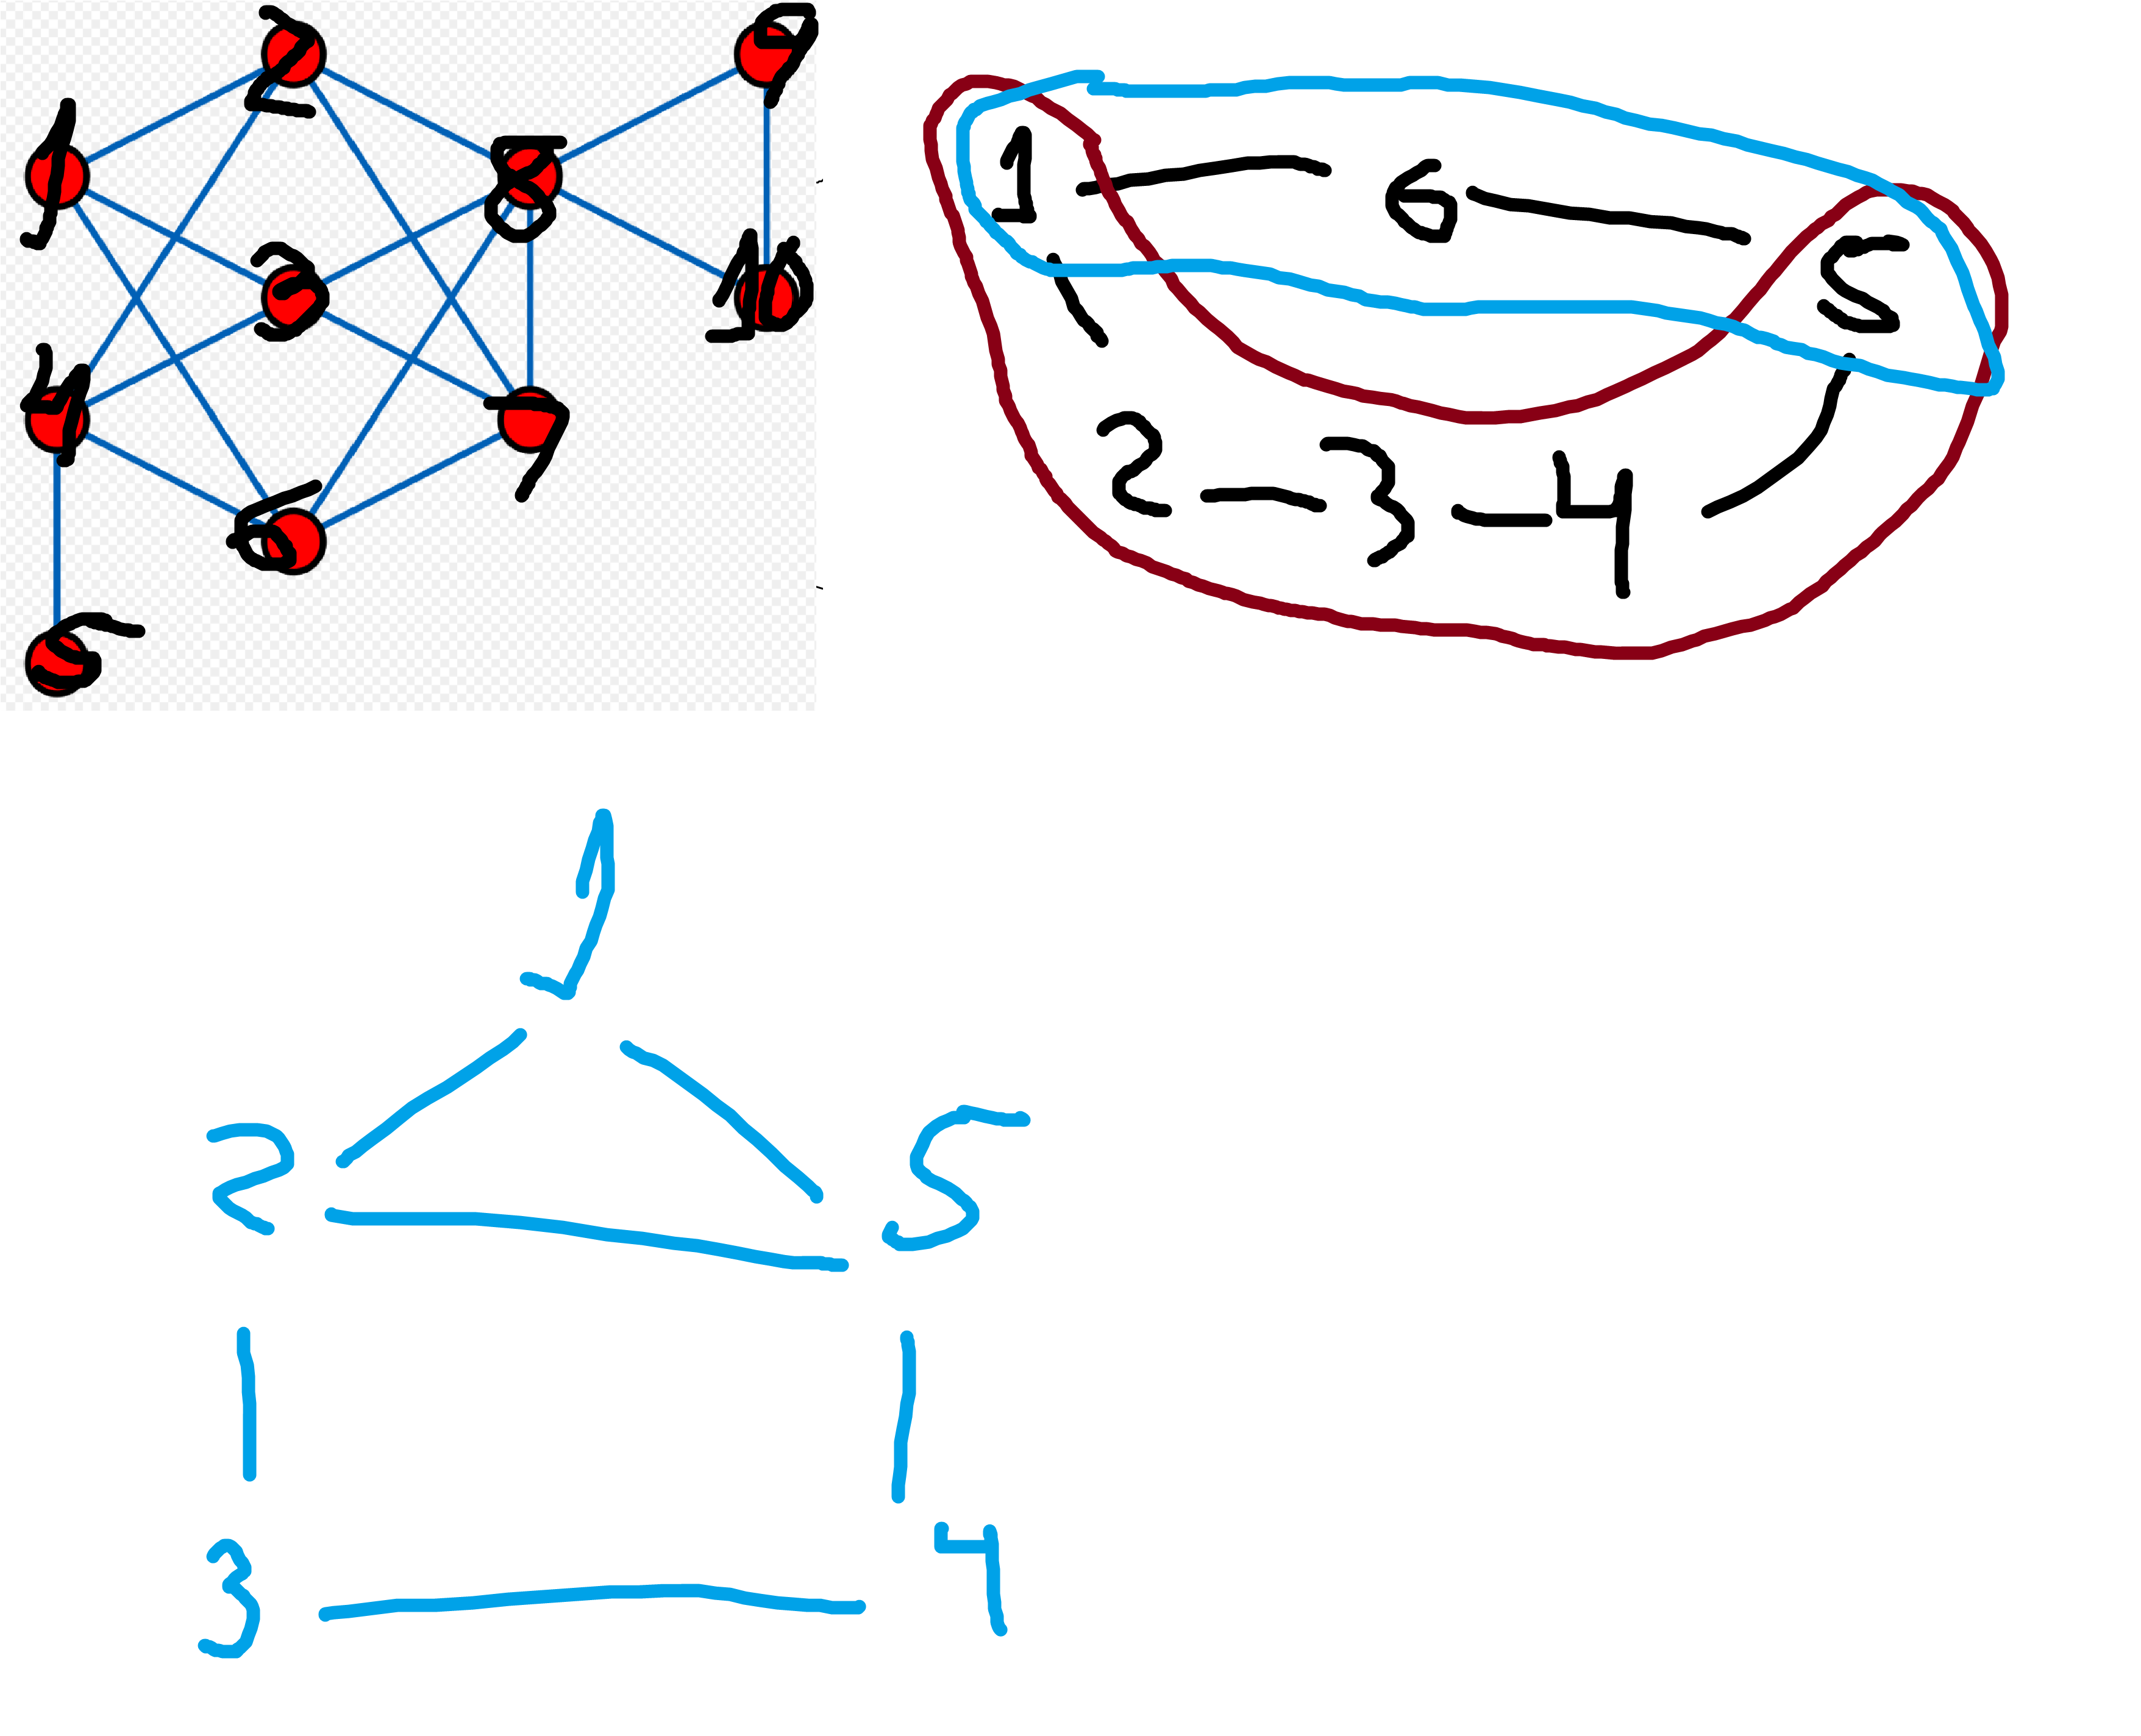 2 9
1 8
3 10
4 7
5
6
1 6 5
2 3 4
1
2 5
3 4